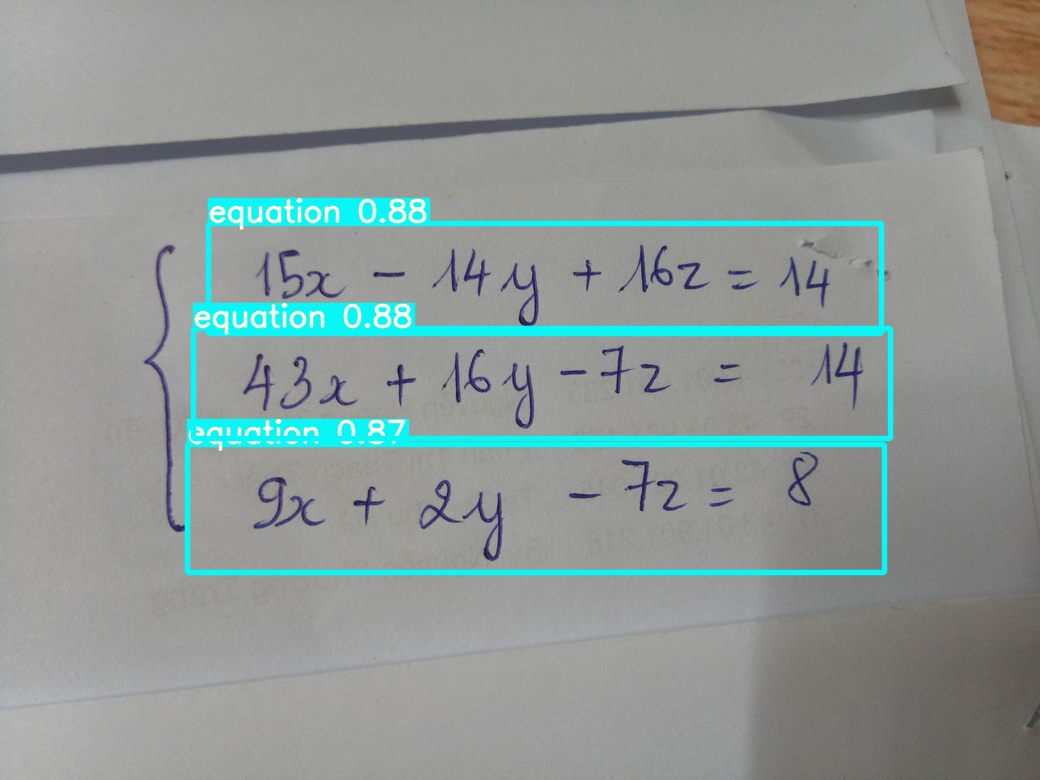 equation 0.88
15x - 14y + 16z = 14
equation 0.88
43x + 16y - 7z = 14
equation 0.87
9x + 2y - 7z = 8